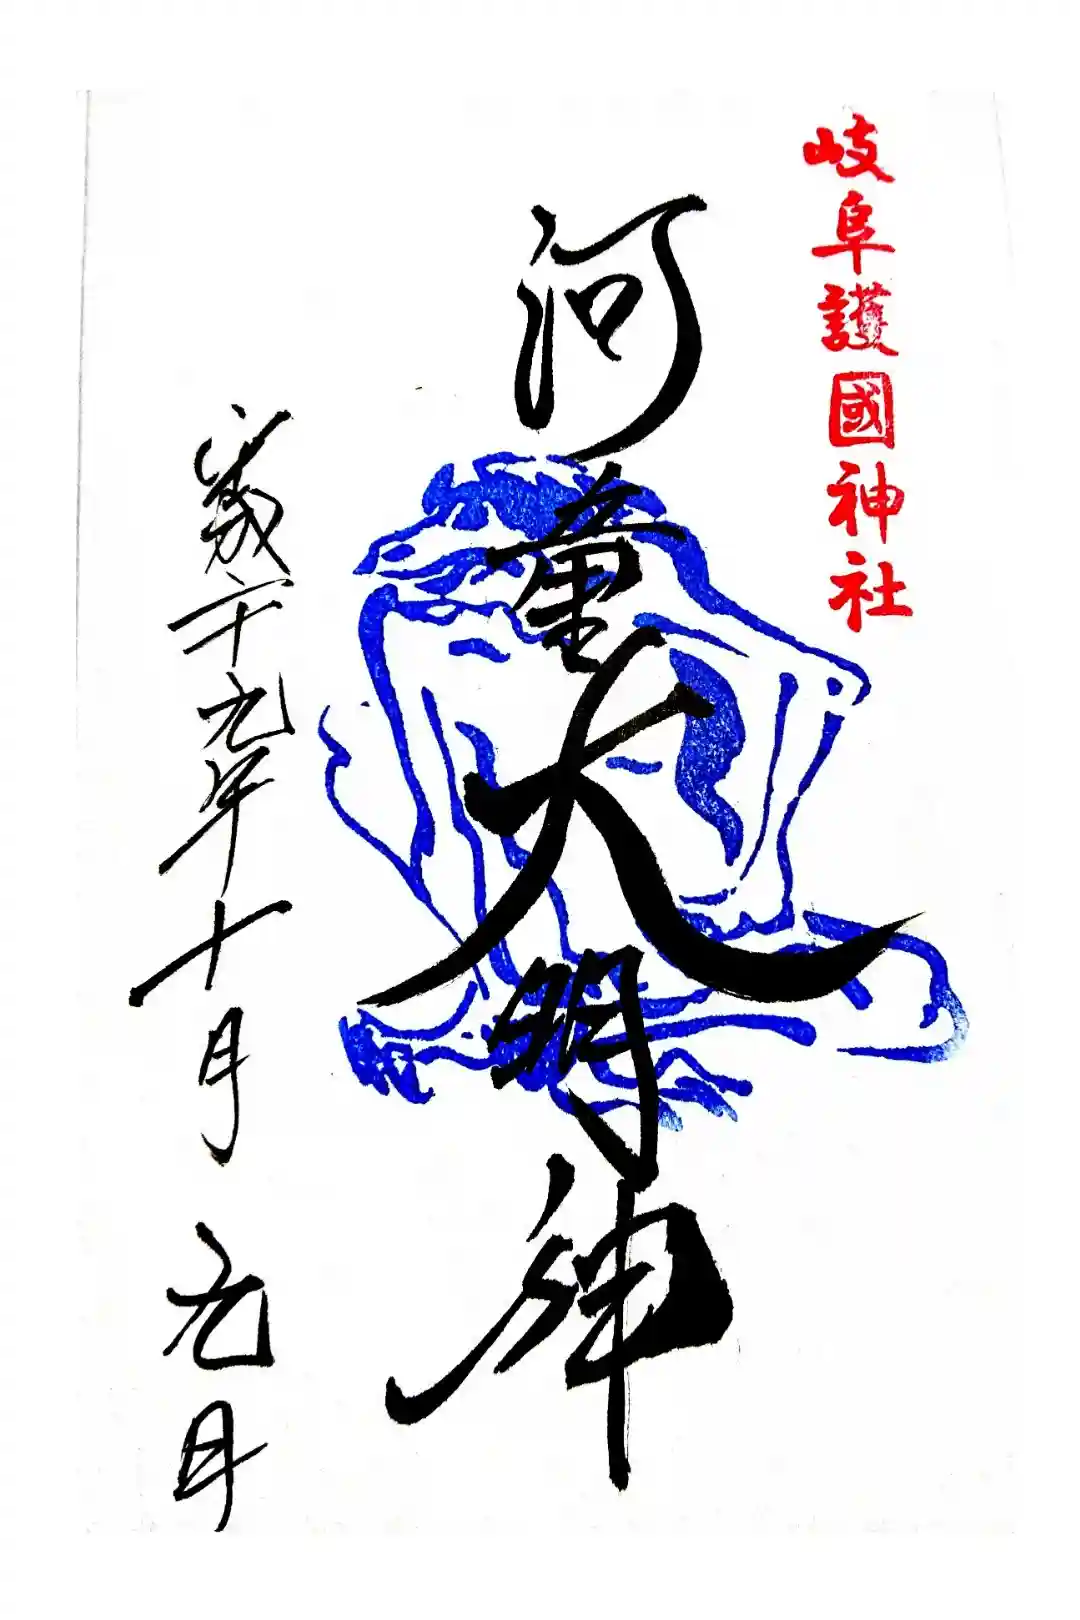 岐阜護國神社
河童大明神
平成二十九年十月